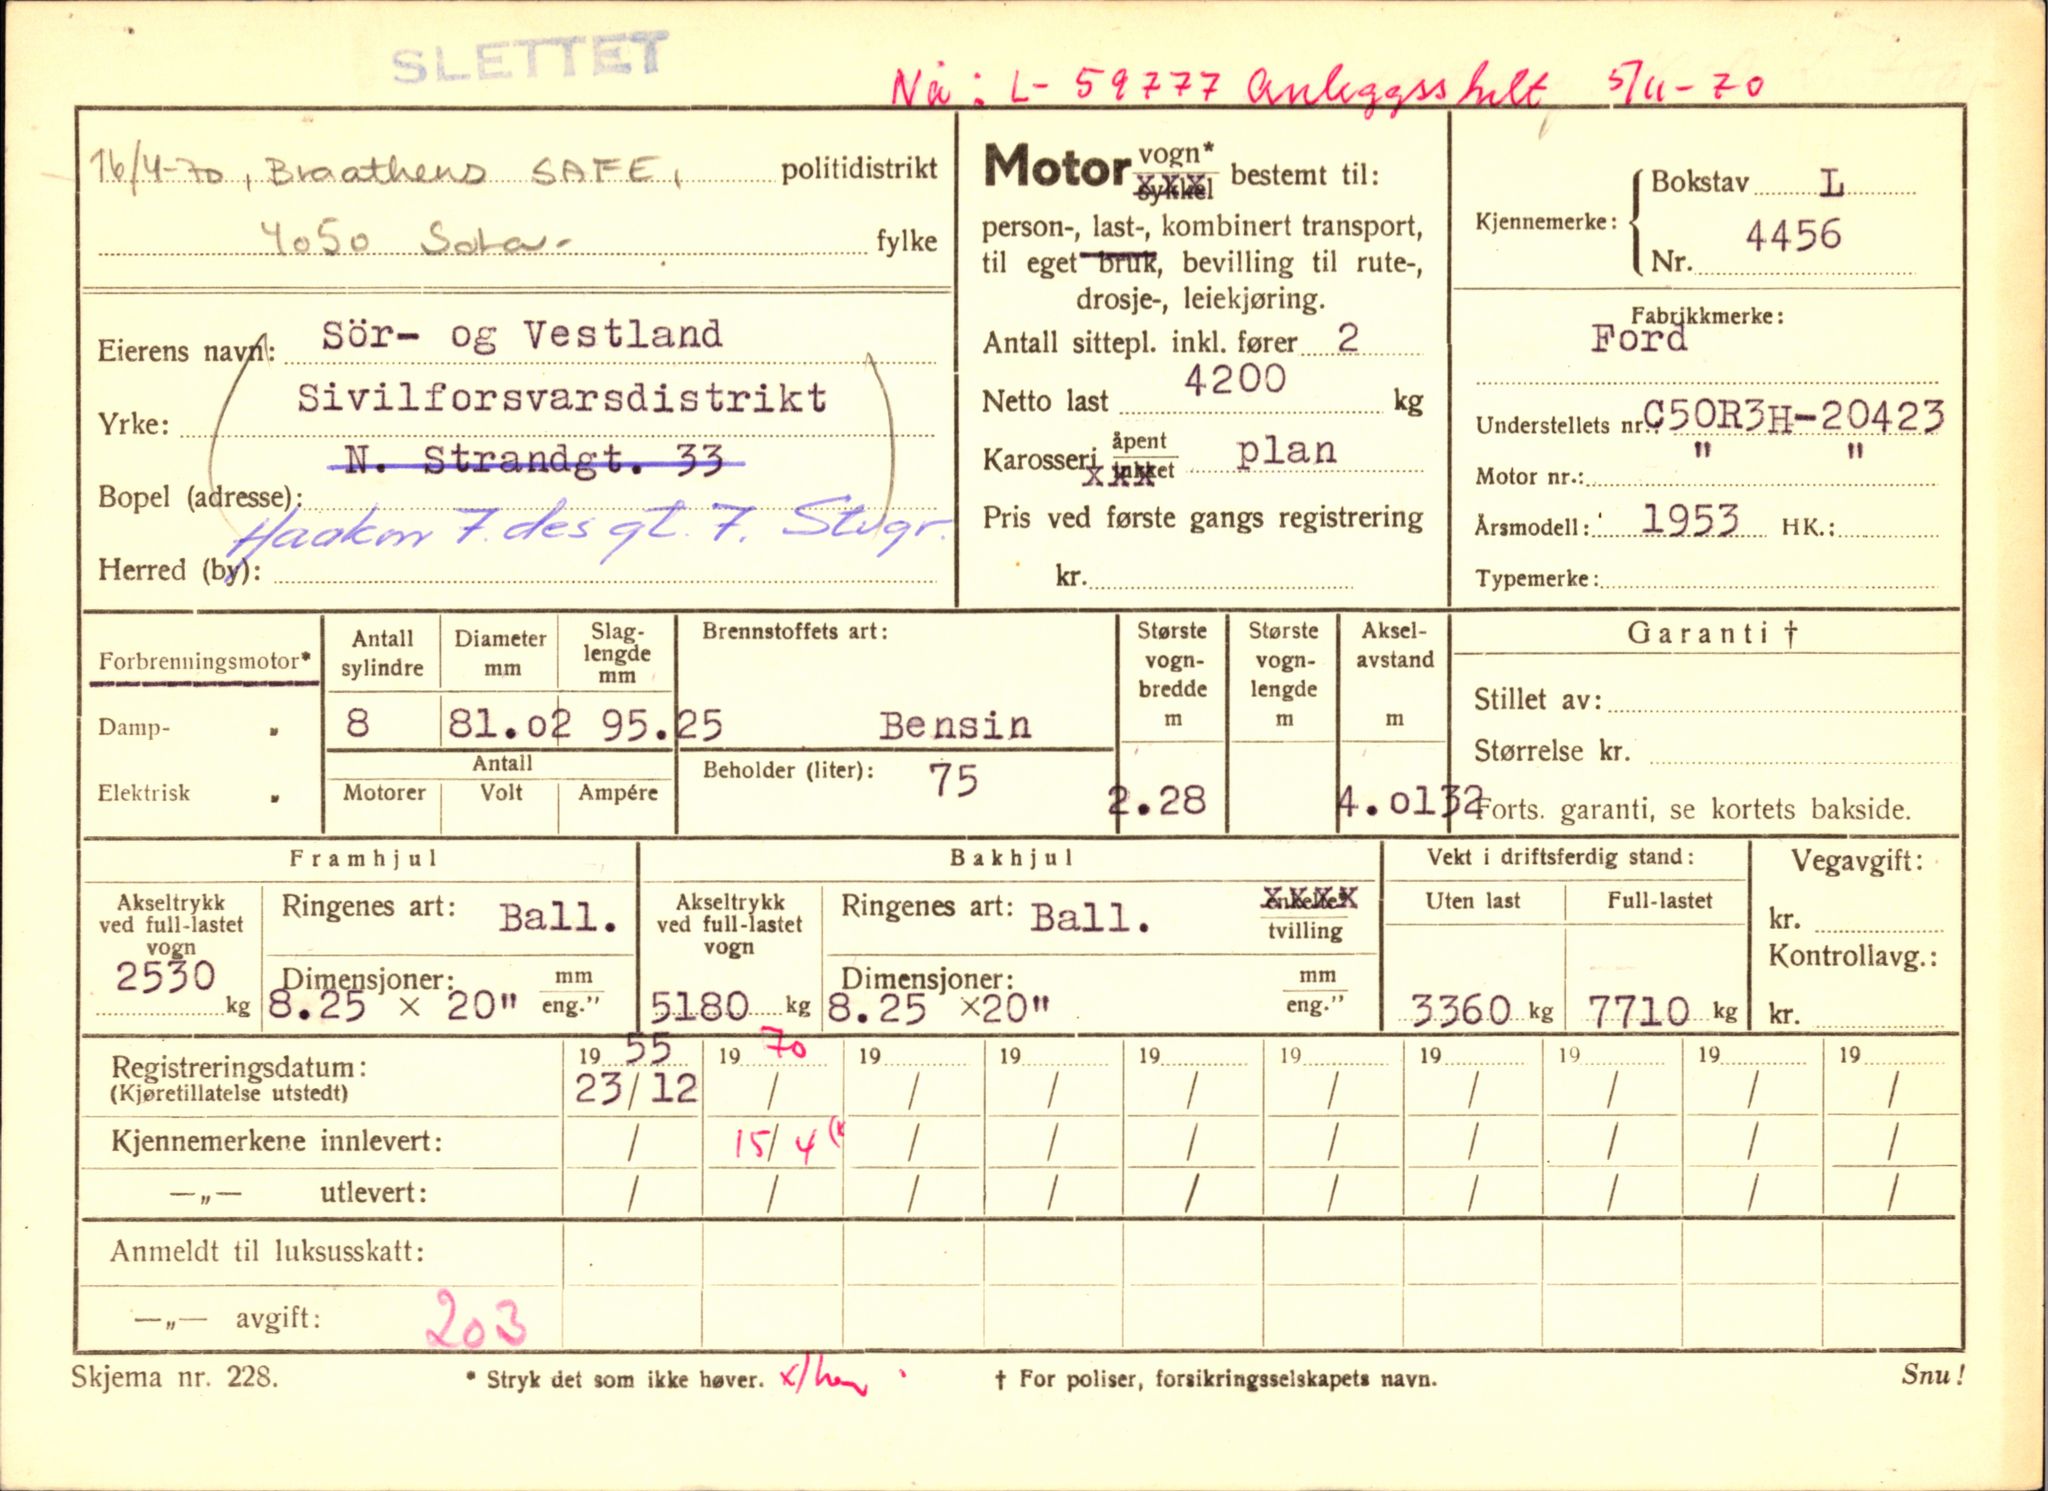 SLETTET
Nå: L- 59777 Anleggsskilt 5/11-70
16/4-70, Braathens SAFE, politidistrikt
4050 Sola fylke
Eierens navn: Sör- og Vestland
Yrke: Sivilforsvarsdistrikt
N. Strandgt. 33
Bopel (adresse):
Haakon 7. des gt. 7. Stvgr.
Herred (by):
Motor vogn* sykkel bestemt til:
person-, last-, kombinert transport,
til eget bruk, bevilling til rute-,
drosje-, leiekjøring.
Antall sittepl. inkl. fører 2
Netto last 4200 kg
Karosseri åpent lukket plan
Pris ved første gangs registrering
kr.
Kjennemerke: Bokstav L
Nr. 4456
Fabrikkmerke:
Ford
Understellets nr.: C50R3H-20423
Motor nr.: " "
Årsmodell: 1953 HK.:
Typemerke:
Forbrenningsmotor*
Damp- „
Elektrisk „
Antall sylindre
8
Diameter mm
81.02
Slag-lengde mm
95.25
Antall
Motorer Volt Ampére
Brennstoffets art:
Bensin
Beholder (liter): 75
Største vogn-bredde m
2.28
Største vogn-lengde m
Aksel-avstand m
4.0132
Garanti †
Stillet av:
Størrelse kr.
Forts. garanti, se kortets bakside.
Framhjul
Akseltrykk ved full-lastet vogn
2530 kg
Ringenes art: Ball.
Dimensjoner: mm
8.25 x 20" eng.”
Bakhjul
Akseltrykk ved full-lastet vogn
5180 kg
Ringenes art: Ball. enkelte* tvilling
Dimensjoner: mm
8.25 x20" eng.”
Vekt i driftsferdig stand:
Uten last Full-lastet
3360 kg 7710 kg
Vegavgift:
kr.
Kontrollavg.:
kr.
Registreringsdatum: 19 55 19 70 19 19 19 19 19 19 19 19
(Kjøretillatelse utstedt) 23/12 / / / / / / / / /
Kjennemerkene innlevert: / 15/4 / / / / / / / /
—„— utlevert: / / / / / / / / / /
Anmeldt til luksusskatt:
—„— avgift: 203
Skjema nr. 228. * Stryk det som ikke høver. † For poliser, forsikringsselskapets navn. Snu!